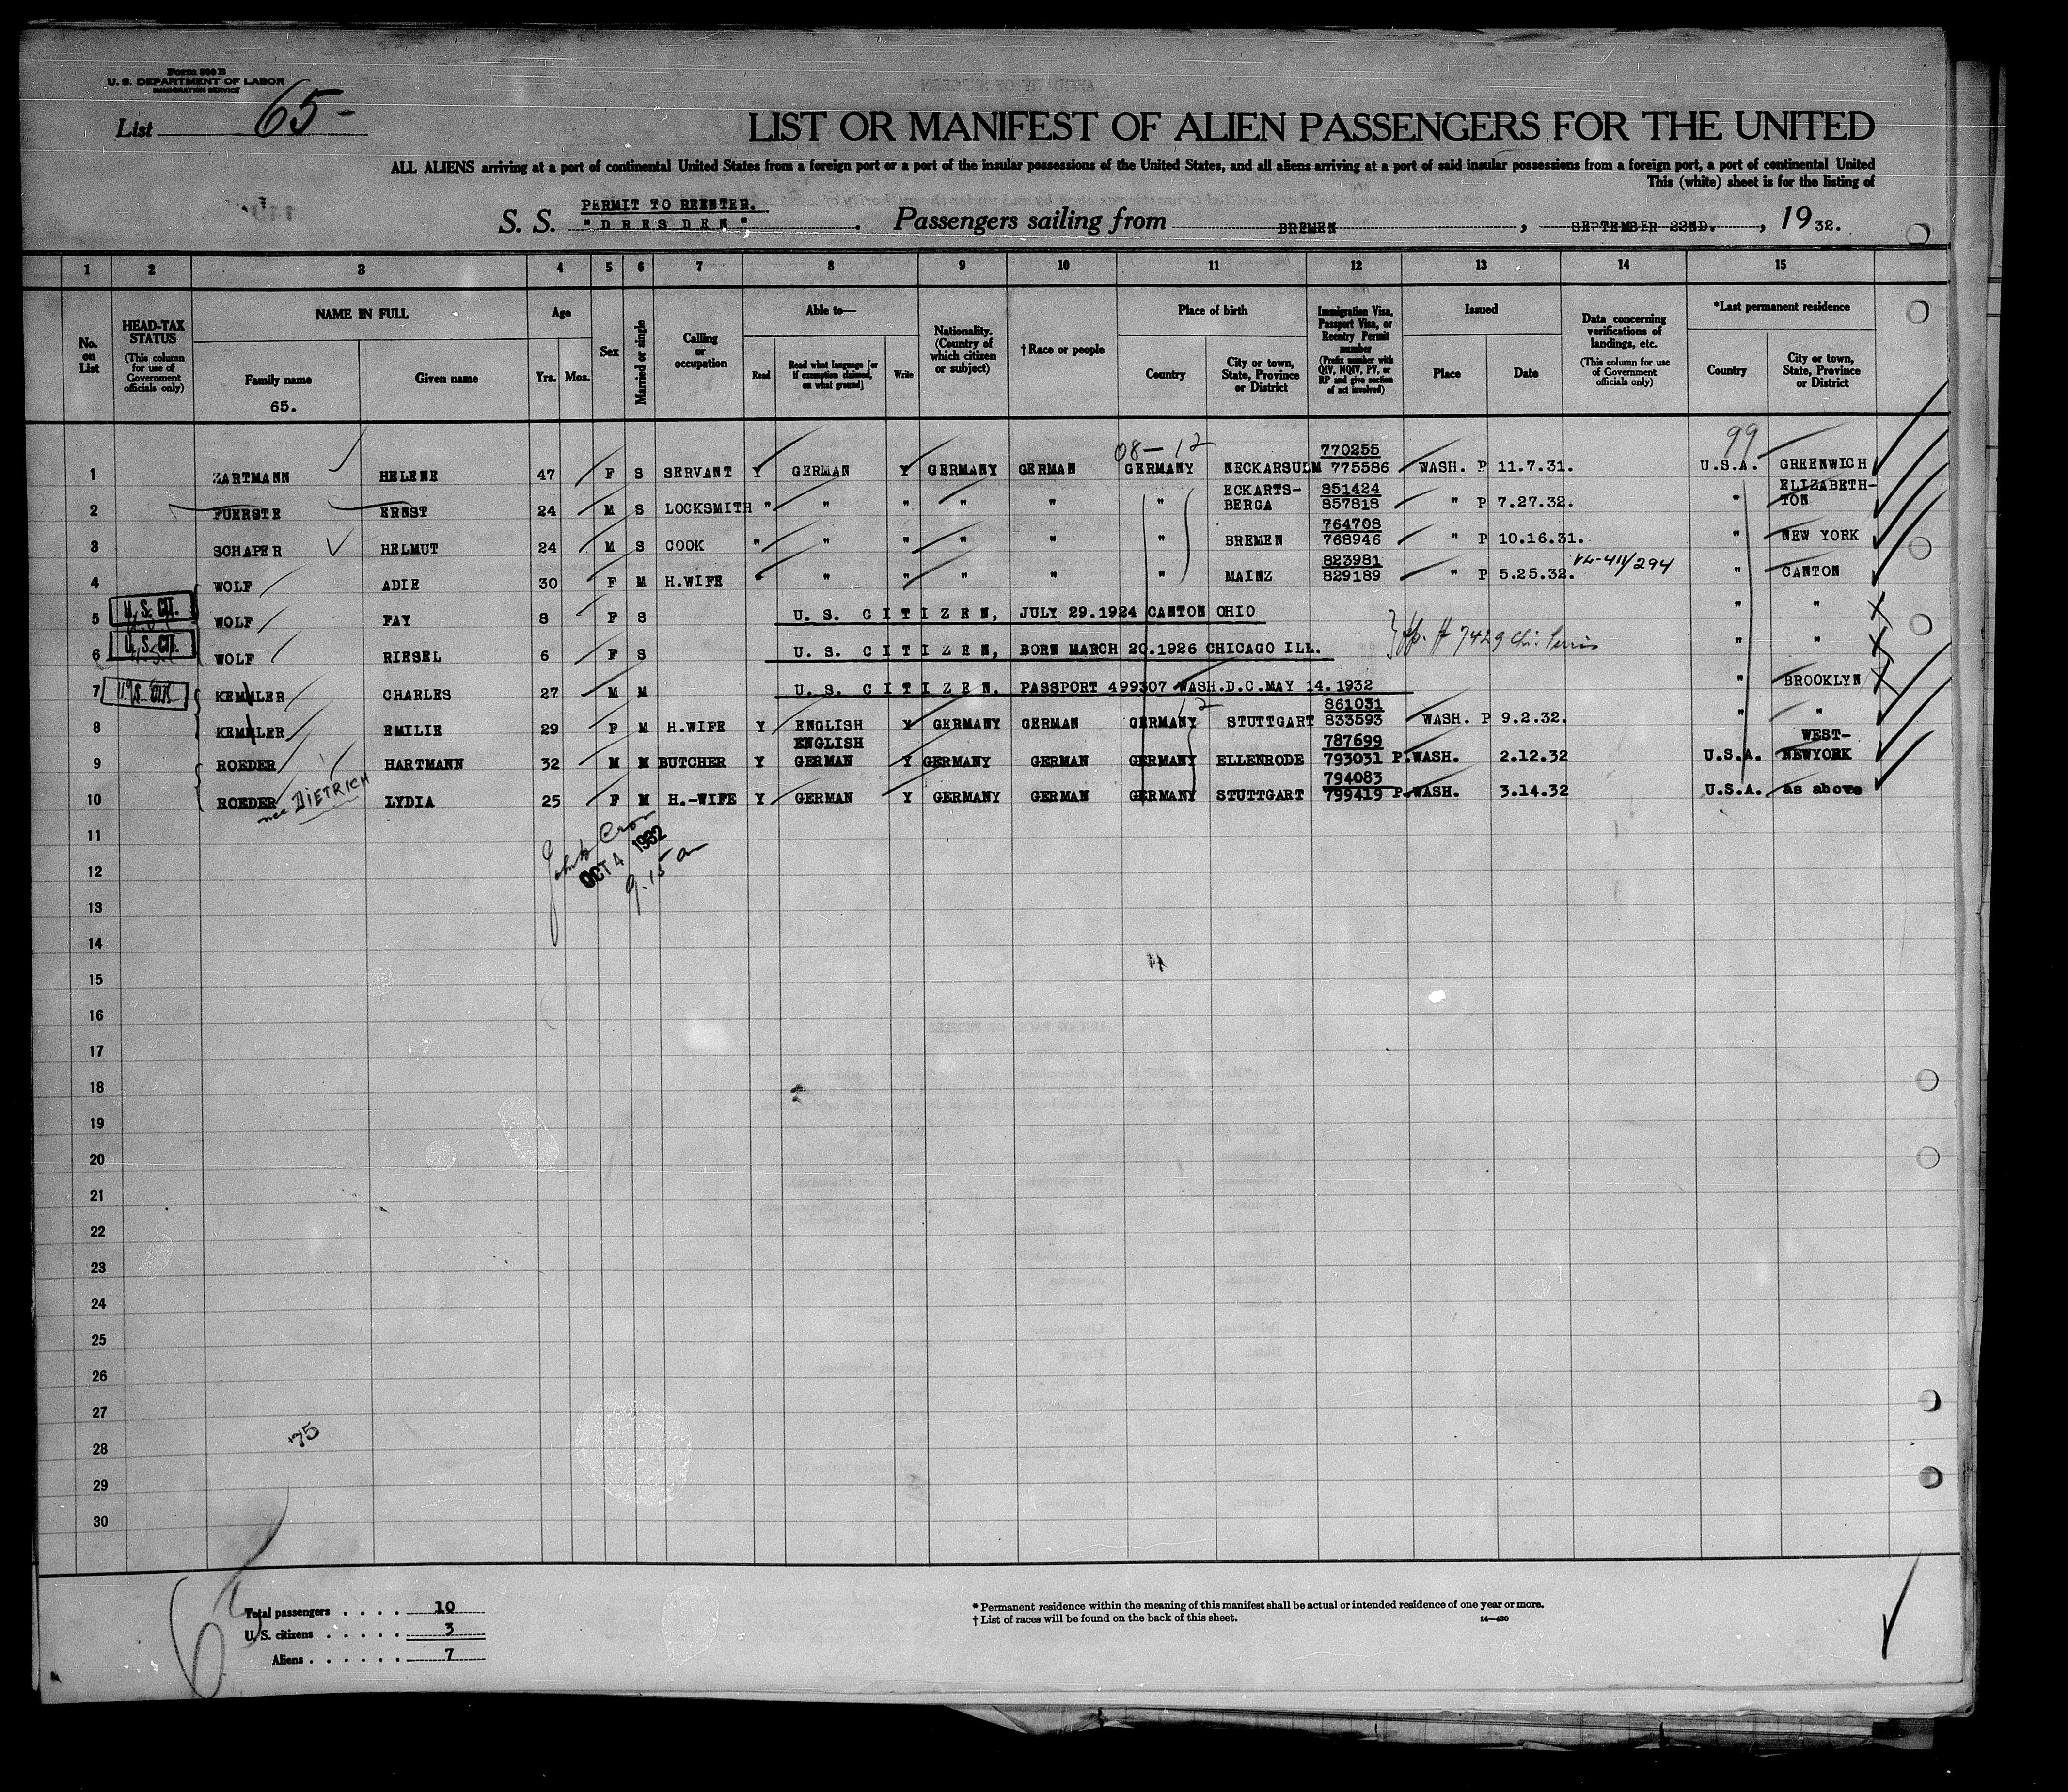 Form 500 B
U. S. DEPARTMENT OF LABOR
IMMIGRATION SERVICE
List 65-
LIST OR MANIFEST OF ALIEN PASSENGERS FOR THE UNITED
ALL ALIENS arriving at a port of continental United States from a foreign port or a port of the insular possessions of the United States, and all aliens arriving at a port of said insular possessions from a foreign port, a port of continental United
This (white) sheet is for the listing of
PERMIT TO REENTER.
S. S. "DRESDEN". Passengers sailing from BREMEN, SEPTEMBER 22ND., 1932.
1 2 3 4 5 6 7 8 9 10 11 12 13 14 15
No. on List
HEAD-TAX STATUS
(This column for use of Government officials only)
NAME IN FULL
Family name
Given name
65.
Age
Yrs. Mos.
Sex
Married or single
Calling or occupation
Able to—
Read
Read what language [or if exemption claimed, on what ground]
Write
Nationality. (Country of which citizen or subject)
†Race or people
Place of birth
Country
City or town, State, Province or District
Immigration Visa, Passport Visa, or Reentry Permit number
(Prefix number with QIV, NQIV, PV, or RP and give section of act involved)
Issued
Place
Date
Data concerning verifications of landings, etc.
(This column for use of Government officials only)
*Last permanent residence
Country
City or town, State, Province or District
08-12 770255 99
1 ZARTMANN HELENE 47 F S SERVANT Y GERMAN Y GERMANY GERMAN GERMANY NECKARSULM 775586 WASH. P 11.7.31. U.S.A. GREENWICH
ECKARTS- 851424 ELIZABETH-
2 FUERSTE ERNST 24 M S LOCKSMITH " " " " " " BERGA 857818 " P 7.27.32. " TON
764708
3 SCHAPER HELMUT 24 M S COOK " " " " " " BREMEN 768946 " P 10.16.31. " NEW YORK
823981
4 WOLF ADIE 30 F M H.WIFE " " " " " " MAINZ 829189 " P 5.25.32. " CANTON
U. S. CIT.
5 WOLF FAY 8 F S U. S. CITIZEN, JULY 29.1924 CANTON OHIO " "
U. S. CIT.
6 WOLF RIESEL 6 F S U. S. CITIZEN, BORN MARCH 20.1926 CHICAGO ILL. # 7429 " "
7 U. S. CIT. KEMMLER CHARLES 27 M M U. S. CITIZEN, PASSPORT 499307 WASH.D.C.MAY 14.1932 " BROOKLYN
12 861031
8 KEMMLER EMILIE 29 F M H.WIFE Y ENGLISH Y GERMANY GERMAN GERMANY STUTTGART 833593 WASH. P 9.2.32. " "
ENGLISH 787699 WEST-
9 ROEDER HARTMANN 32 M M BUTCHER Y GERMAN Y GERMANY GERMAN GERMANY ELLENRODE 793031 P.WASH. 2.12.32 U.S.A. NEWYORK
794083
10 ROEDER LYDIA 25 F M H.-WIFE Y GERMAN Y GERMANY GERMAN GERMANY STUTTGART 799419 P.WASH. 3.14.32 U.S.A. as above
nee DIETRICH
11
OCT 4 1932
12
9.15 am
13
14
15
16
17
18
19
20
21
22
23
24
25
26
27
28
29
30
Total passengers . . . . 10
U. S. citizens . . . . . 3
Aliens . . . . . . 7
* Permanent residence within the meaning of this manifest shall be actual or intended residence of one year or more.
† List of races will be found on the back of this sheet. 14—430